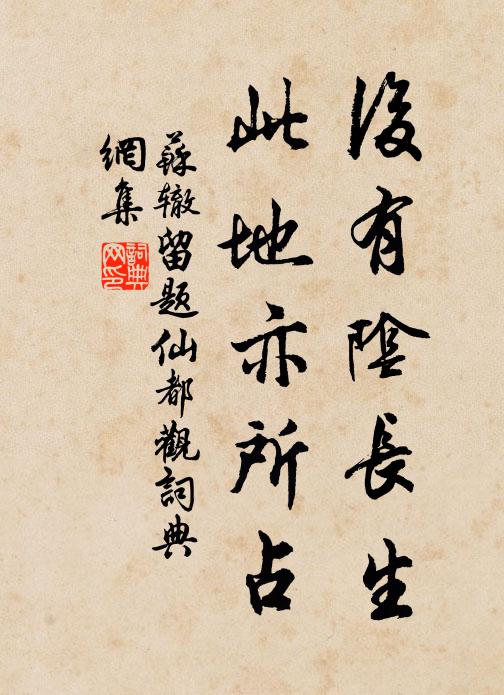 後有陰長生
此地亦所占
蘇辙留題仙都觀詞典
網集
詞典
网印